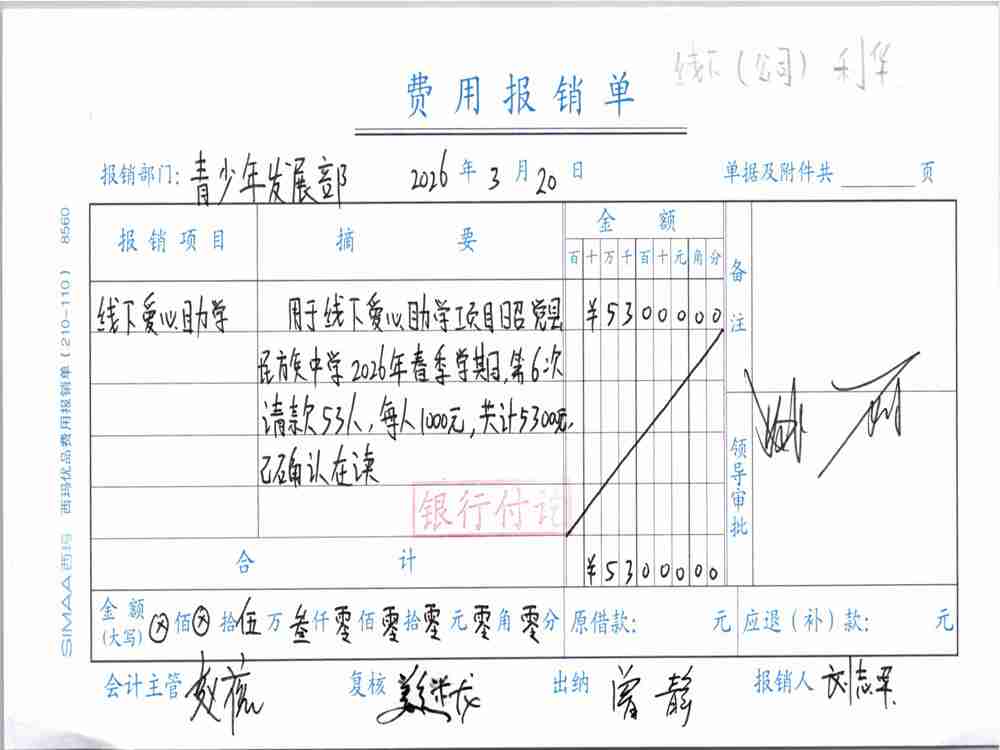 线下（公司）利华
费用报销单
报销部门：青少年发展部 2026年3月20日 单据及附件共 页
报销项目 摘要 金额 备注
百十万千百十元角分
线下爱心助学 用于线下爱心助学项目昭觉县 ¥5300000
民族中学2026年春季学期，第6次
请款53人，每人1000元，共计53000元，
已确认在读
银行付讫
领导审批
合计 ¥5300000
金额（大写）ⓧ佰ⓧ拾伍万叁仟零佰零拾零元零角零分 原借款： 元 应退（补）款： 元
会计主管 复核 出纳 曾静 报销人
SIMAA西玛 西玛优品费用报销单（210-110） 8560